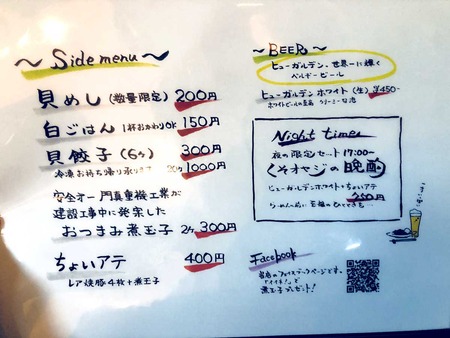 ～ Side menu ～
貝めし (数量限定) 200円
白ごはん 1杯おかわりok 150円
貝餃子 (6ヶ) 300円
冷凍お持ち帰り承ります 20ヶ 1000円
安全オー門真重機工業が
建設工事中に発案した
おつまみ煮玉子 2ヶ 300円
ちょいアテ 400円
レア焼豚4枚+煮玉子
～BEER～
ヒューガルデン、世界一に輝く
ベルギービール
ヒューガルデンホワイト (生) ¥450-
ホワイトビールの王様
Night time
夜の限定セット 17:00～
くそオヤジの晩酌
ヒューガルデンホワイト+ちょいアテ
らーめん前に至福のひとときを…
Facebook
当店のフェイスブックページです。
「イイネ！」で
煮玉子プレゼント！